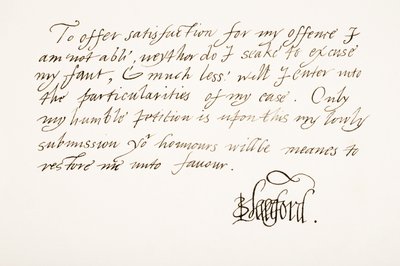 To offer satisfaction for my offence I
am not able, neyther do I seake to excuse
my faut, & much less will I enter into
the particularities of my case. Only
my humble petition is upon this my lowly
submission yor honnours willbe meanes to
restore me unto favour.